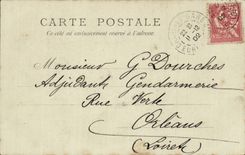 CARTE POSTALE
Ce côté est exclusivement réservé à l'adresse
Monsieur G Dourches
Adjudant Gendarmerie
Rue Verte
Orléans
(Loiret)